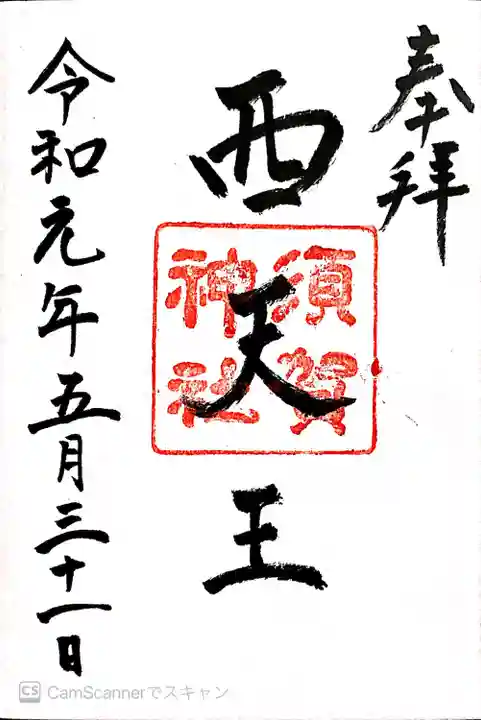 奉拝
西天王
須賀
神社
令和元年五月三十一日
CS CamScannerでスキャン